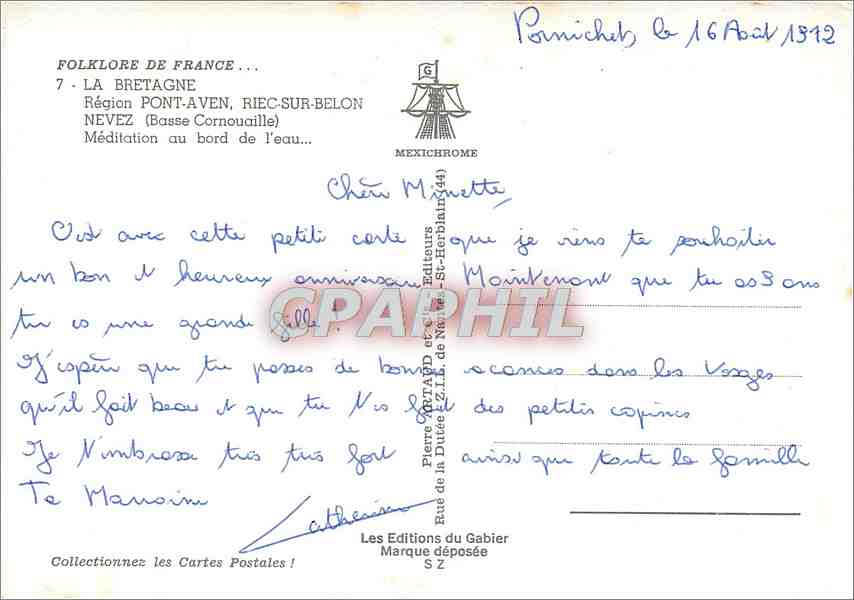 Pornichet, le 16 Août 1972
FOLKLORE DE FRANCE...
7 - LA BRETAGNE
Région PONT-AVEN, RIEC-SUR-BELON
NEVEZ (Basse Cornouaille)
Méditation au bord de l'eau...
G
MEXICHROME
Chère Minette,
C'est avec cette petite carte que je viens te souhaiter
un bon et heureux anniversaire Maintenant que tu as 9 ans
tu es une grande fille !
CPARPHIL
J'espère que tu passes de bonnes vacances dans les Vosges
qu'il fait beau et que tu t'es fait des petites copines
Je t'embrasse très très fort ainsi que toute la famille
Ta Marraine
Catherine
Pierre ARTAUD et Cie - Editeurs
Rue de la Dutée - Z.I.L. de Nantes-St-Herblain (44)
Les Editions du Gabier
Marque déposée
S Z
Collectionnez les Cartes Postales !